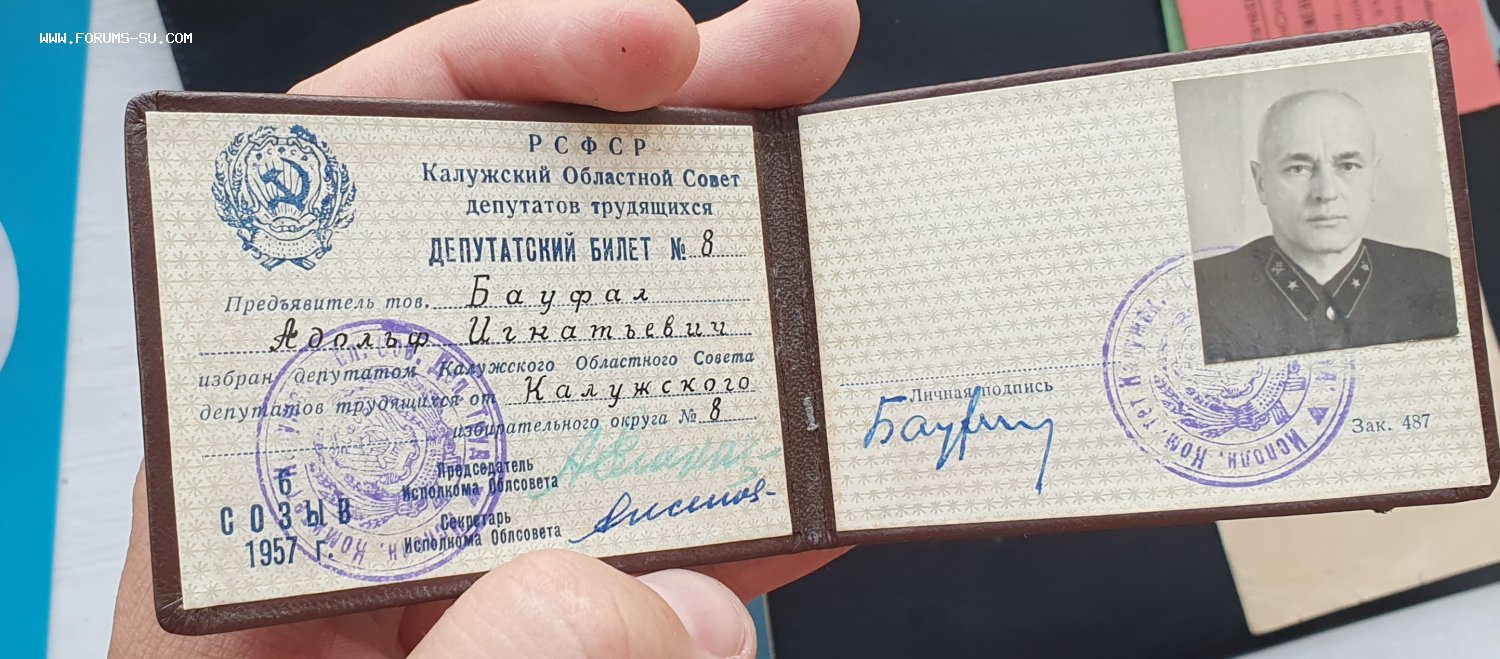 WWW.FORUMS-SU.COM
РСФСР
Калужский Областной Совет
депутатов трудящихся
ДЕПУТАТСКИЙ БИЛЕТ № 8
Предъявитель тов. Бауфал
Адольф Игнатьевич
избран депутатом Калужского Областного Совета
депутатов трудящихся от Калужского
избирательного округа № 8
Председатель
Исполкома Облсовета
Секретарь
Исполкома Облсовета
6
СОЗЫВ
1957 г.
Личная подпись
Зак. 487